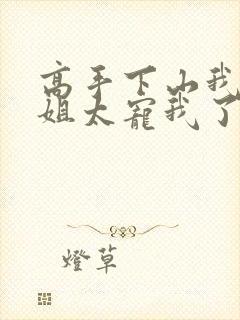 高手下山我
姐太寵我了
燈草